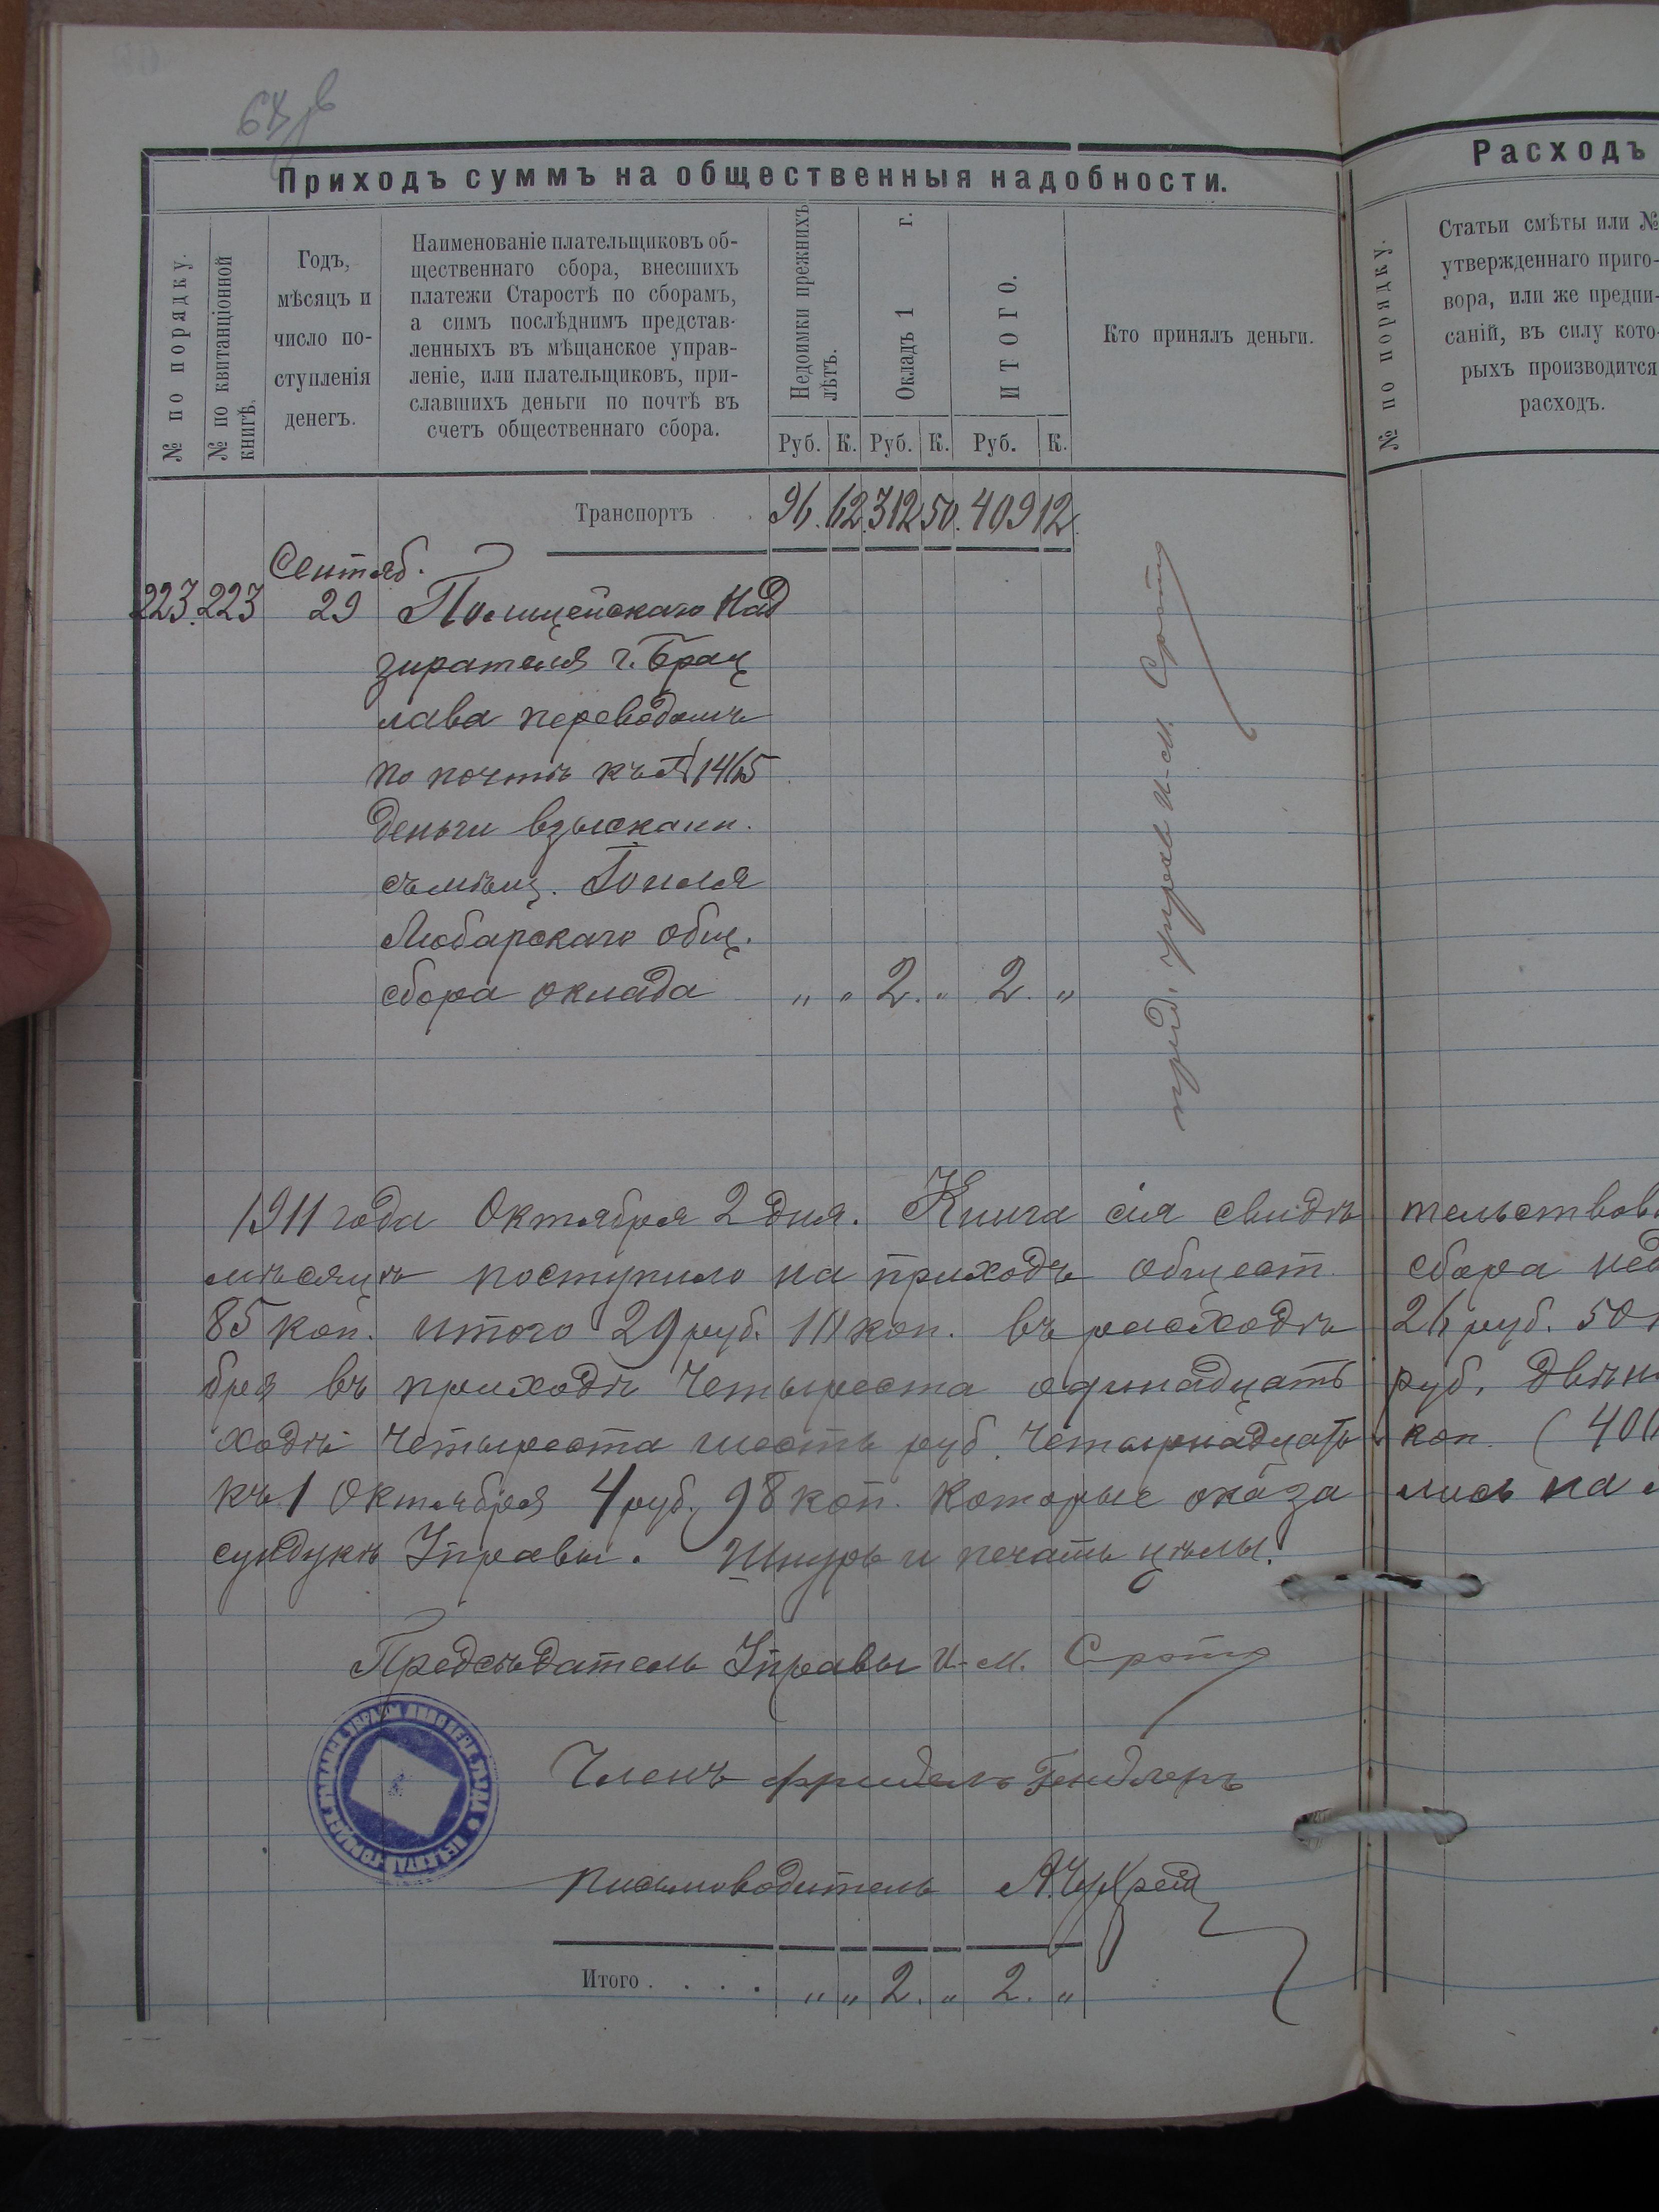 Приходъ суммъ на общественныя надобности.
Расходъ
№ по порядку.
№ по квитанціонной
книгѣ.
Годъ,
мѣсяцъ и
число по-
ступленія
денегъ.
Наименованіе плательщиковъ об-
щественнаго сбора, внесшихъ
платежи Старостѣ по сборамъ,
а симъ послѣднимъ представ-
ленныхъ въ мѣщанское управ-
леніе, или плательщиковъ, при-
славшихъ деньги по почтѣ въ
счетъ общественнаго сбора.
Недоимки прежнихъ
лѣтъ.
Окладъ 1 г.
ИТОГО.
Руб. К. Руб. К. Руб. К.
Кто принялъ деньги.
№ по порядку.
Статьи смѣты или №
утвержденнаго приго-
вора, или же предпи-
саній, въ силу кото-
рыхъ производится
расходъ.
Транспортъ . . 96. 62. 312 50. 409 12.
Сентяб.
223. 223 29 Полицейскаго Над
зирателя г. Брац
лава переводомъ
по почтѣ къ №
деньги взыскани.
съ мѣщ.
Любарскаго общ.
сбора оклада „ „ 2. „ 2. „
пред. управы И-М.
1911 года Октября 2 дня. Книга сія свидѣ тельствов
мѣсяцѣ поступило на приходъ общест. сбора нед
85 коп. итого 29 руб. коп. въ расходѣ 26 руб. 50
бря въ приходѣ Четыреста одинадцать руб. двѣн
ходѣ четыреста шесть руб. четырнадцать коп. (
къ 1 Октября 4 руб. 98 коп. которые оказа лись на
сундукѣ Управы. Шнуръ и печать цѣлы.
Предсѣдатель Управы И-М.
Членъ Фридель Гендлеръ
Письмоводитель
Итого . . . . „ „ 2. „ 2. „